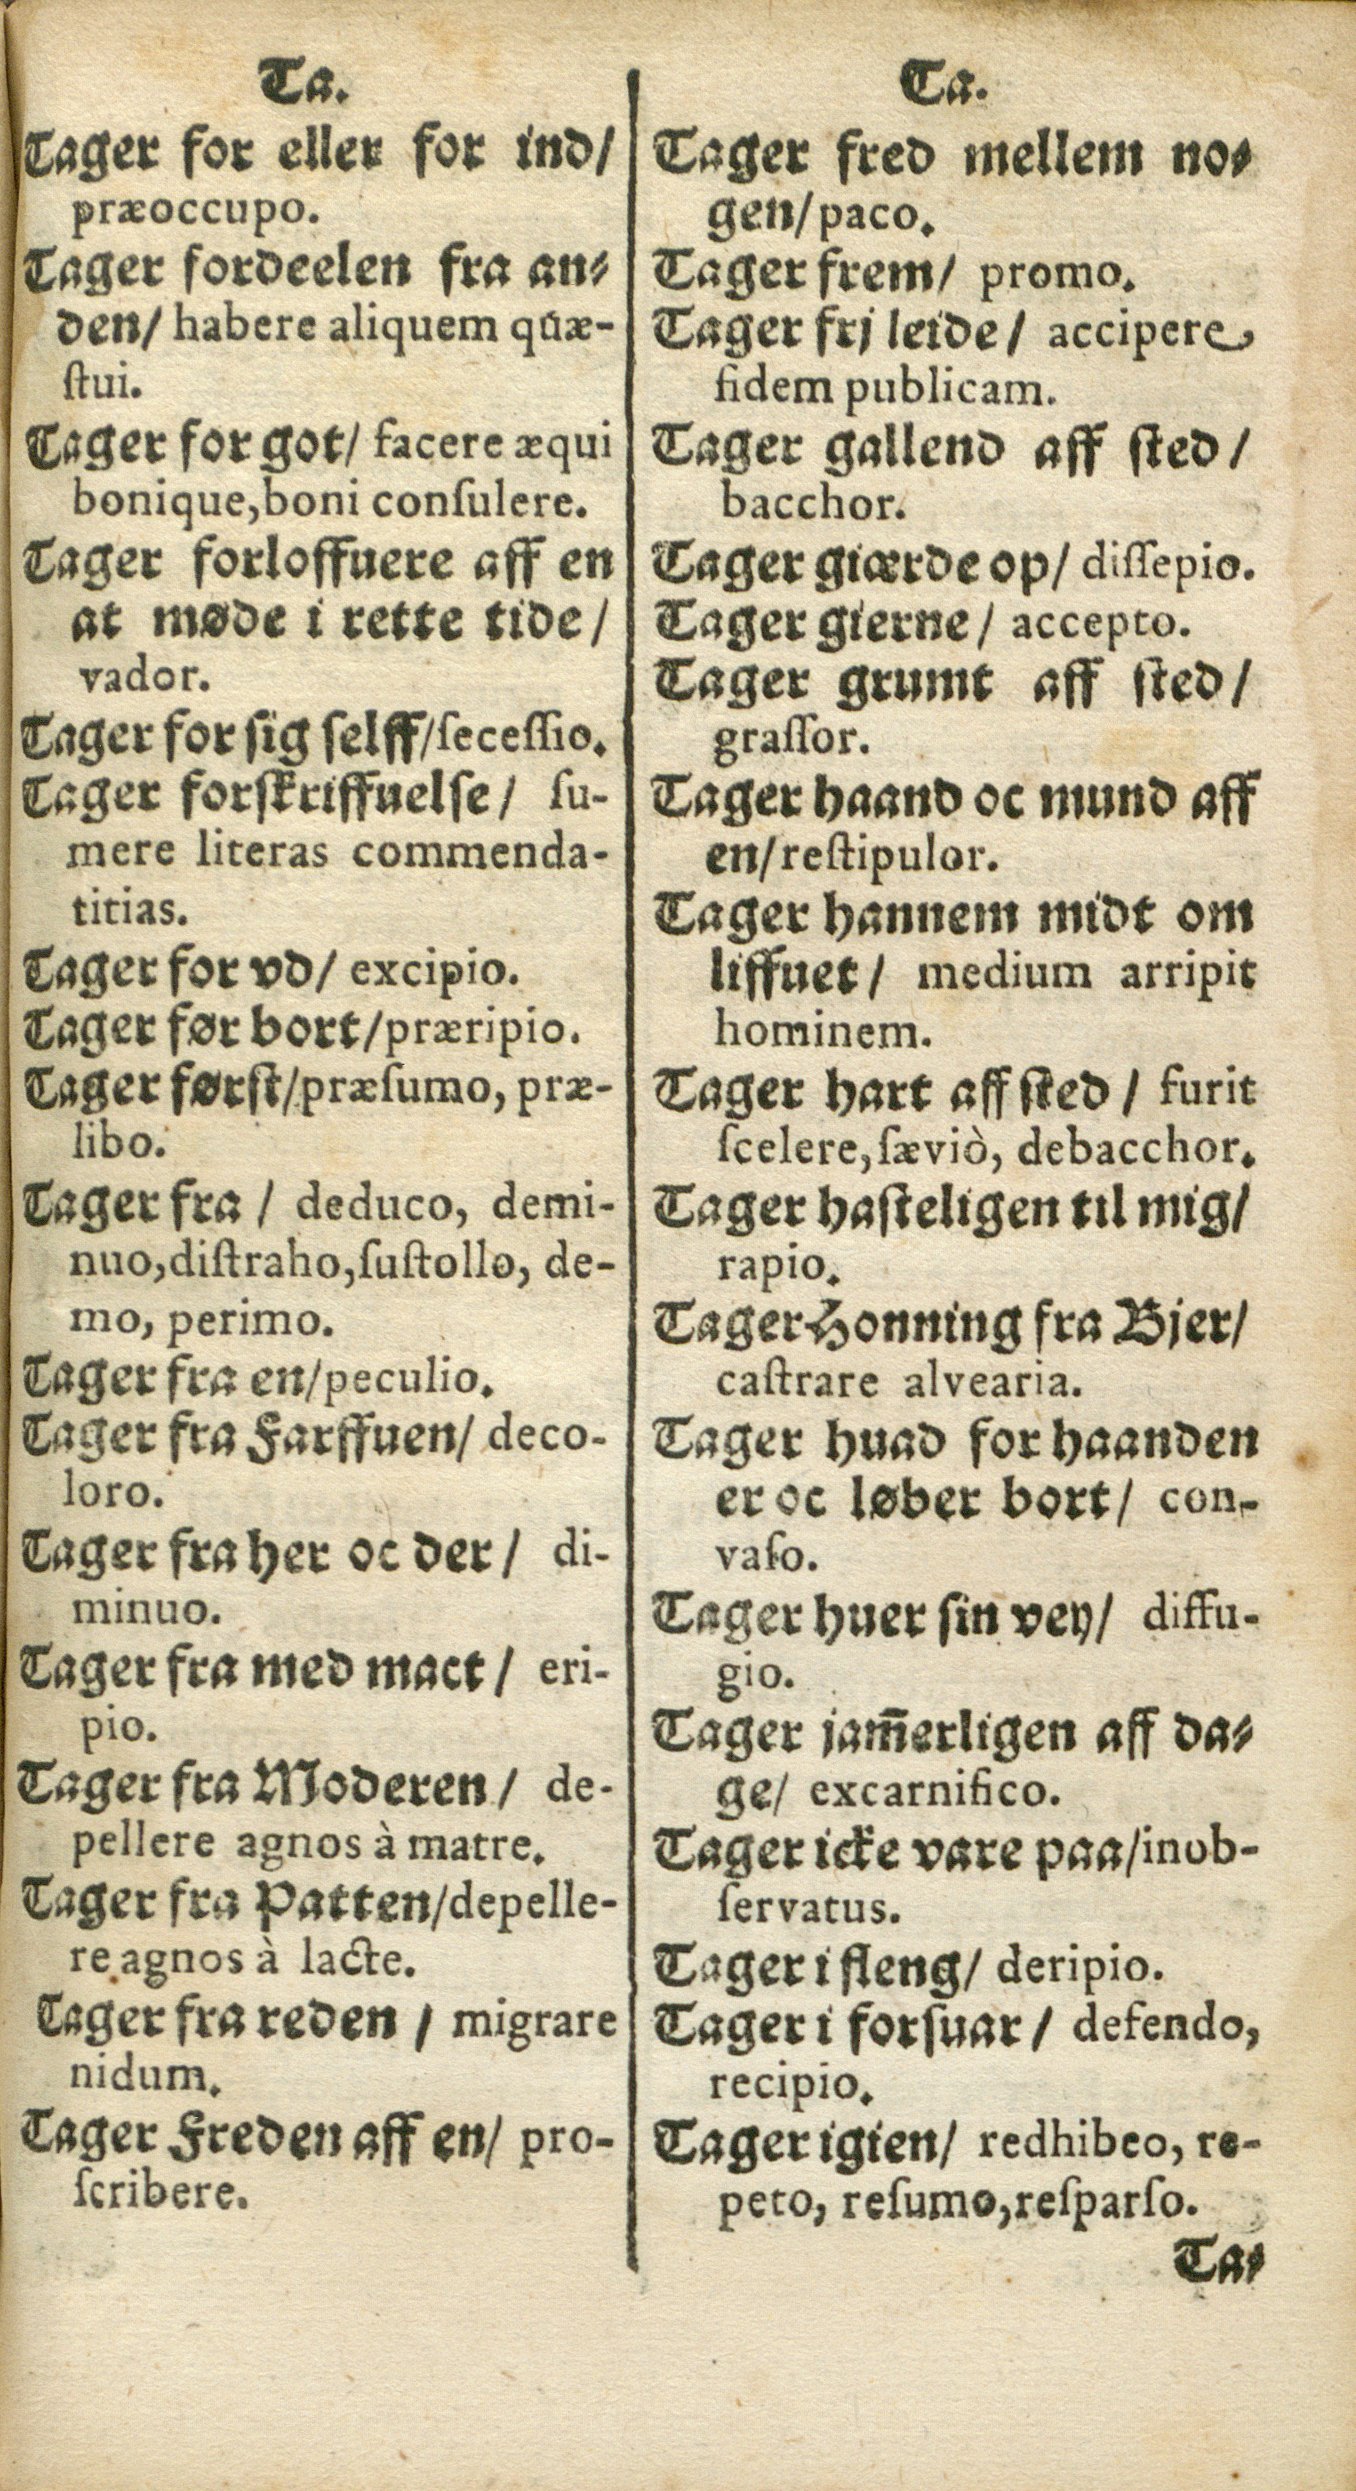 Ta.
Tager for eller for ind/
præoccupo.
Tager fordeelen fra an⸗
den/ habere aliquem quæ-
ſtui.
Tager for got/ facere æqui
bonique, boni conſulere.
Tager forloffuere aff en
at møde i rette tide/
vador.
Tager for ſig ſelff/ſeceſſio.
Tager forſkriffuelſe/ ſu-
mere literas commenda-
titias.
Tager for vd/ excipio.
Tager før bort/præripio.
Tager førſt/præſumo, præ-
libo.
Tager fra / deduco, demi-
nuo, diſtraho, ſuſtollo, de-
mo, perimo.
Tager fra en/peculio.
Tager fra Farffuen/ deco-
loro.
Tager fra her oc der/ di-
minuo.
Tager fra med mact/ eri-
pio.
Tager fra Moderen/ de-
pellere agnos à matre.
Tager fra Patten/depelle-
re agnos à lacte.
Tager fra reden / migrare
nidum.
Tager Freden aff en/ pro-
ſcribere.
Ta.
Tager fred mellem no⸗
gen/paco.
Tager frem/ promo.
Tager frj leide/ accipere
fidem publicam.
Tager gallend aff ſted/
bacchor.
Tager giærde op/ diſſepio.
Tager gierne/ accepto.
Tager grumt aff ſted/
graſſor.
Tager haand oc mund aff
en/reſtipulor.
Tager hannem midt om
liffuet/ medium arripit
hominem.
Tager hart aff ſted / furit
ſcelere, ſæviò, debacchor.
Tager haſteligen til mig/
rapio.
Tager Honning fra Bjer/
caſtrare alvearia.
Tager huad for haanden
er oc løber bort/ con-
vaſo.
Tager huer ſin vey/ diffu-
gio.
Tager jam̃erligen aff da⸗
ge/ excarnifico.
Tager icke vare paa/inob-
ſervatus.
Tager i fleng/ deripio.
Tager i forſuar/ defendo,
recipio.
Tager igien/ redhibeo, re-
peto, reſumo, reſparſo.
Ta⸗